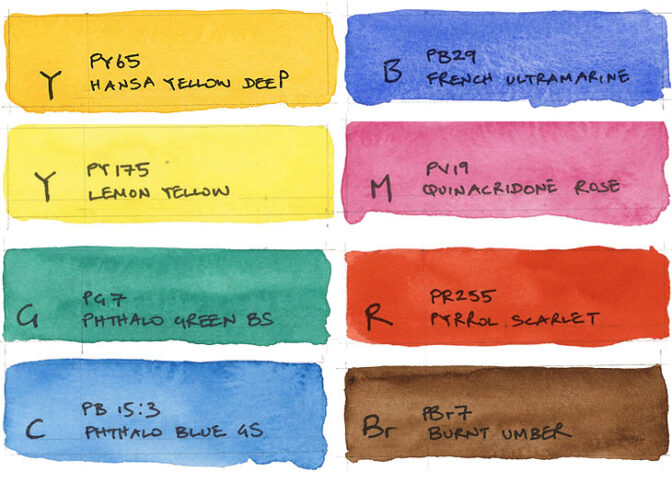 Y
PY65
HANSA YELLOW DEEP
B
PB29
FRENCH ULTRAMARINE
Y
PY175
LEMON YELLOW
M
PV19
QUINACRIDONE ROSE
G
PG7
PHTHALO GREEN BS
R
PR255
PYRROL SCARLET
C
PB 15:3
PHTHALO BLUE GS
Br
PBr7
BURNT UMBER